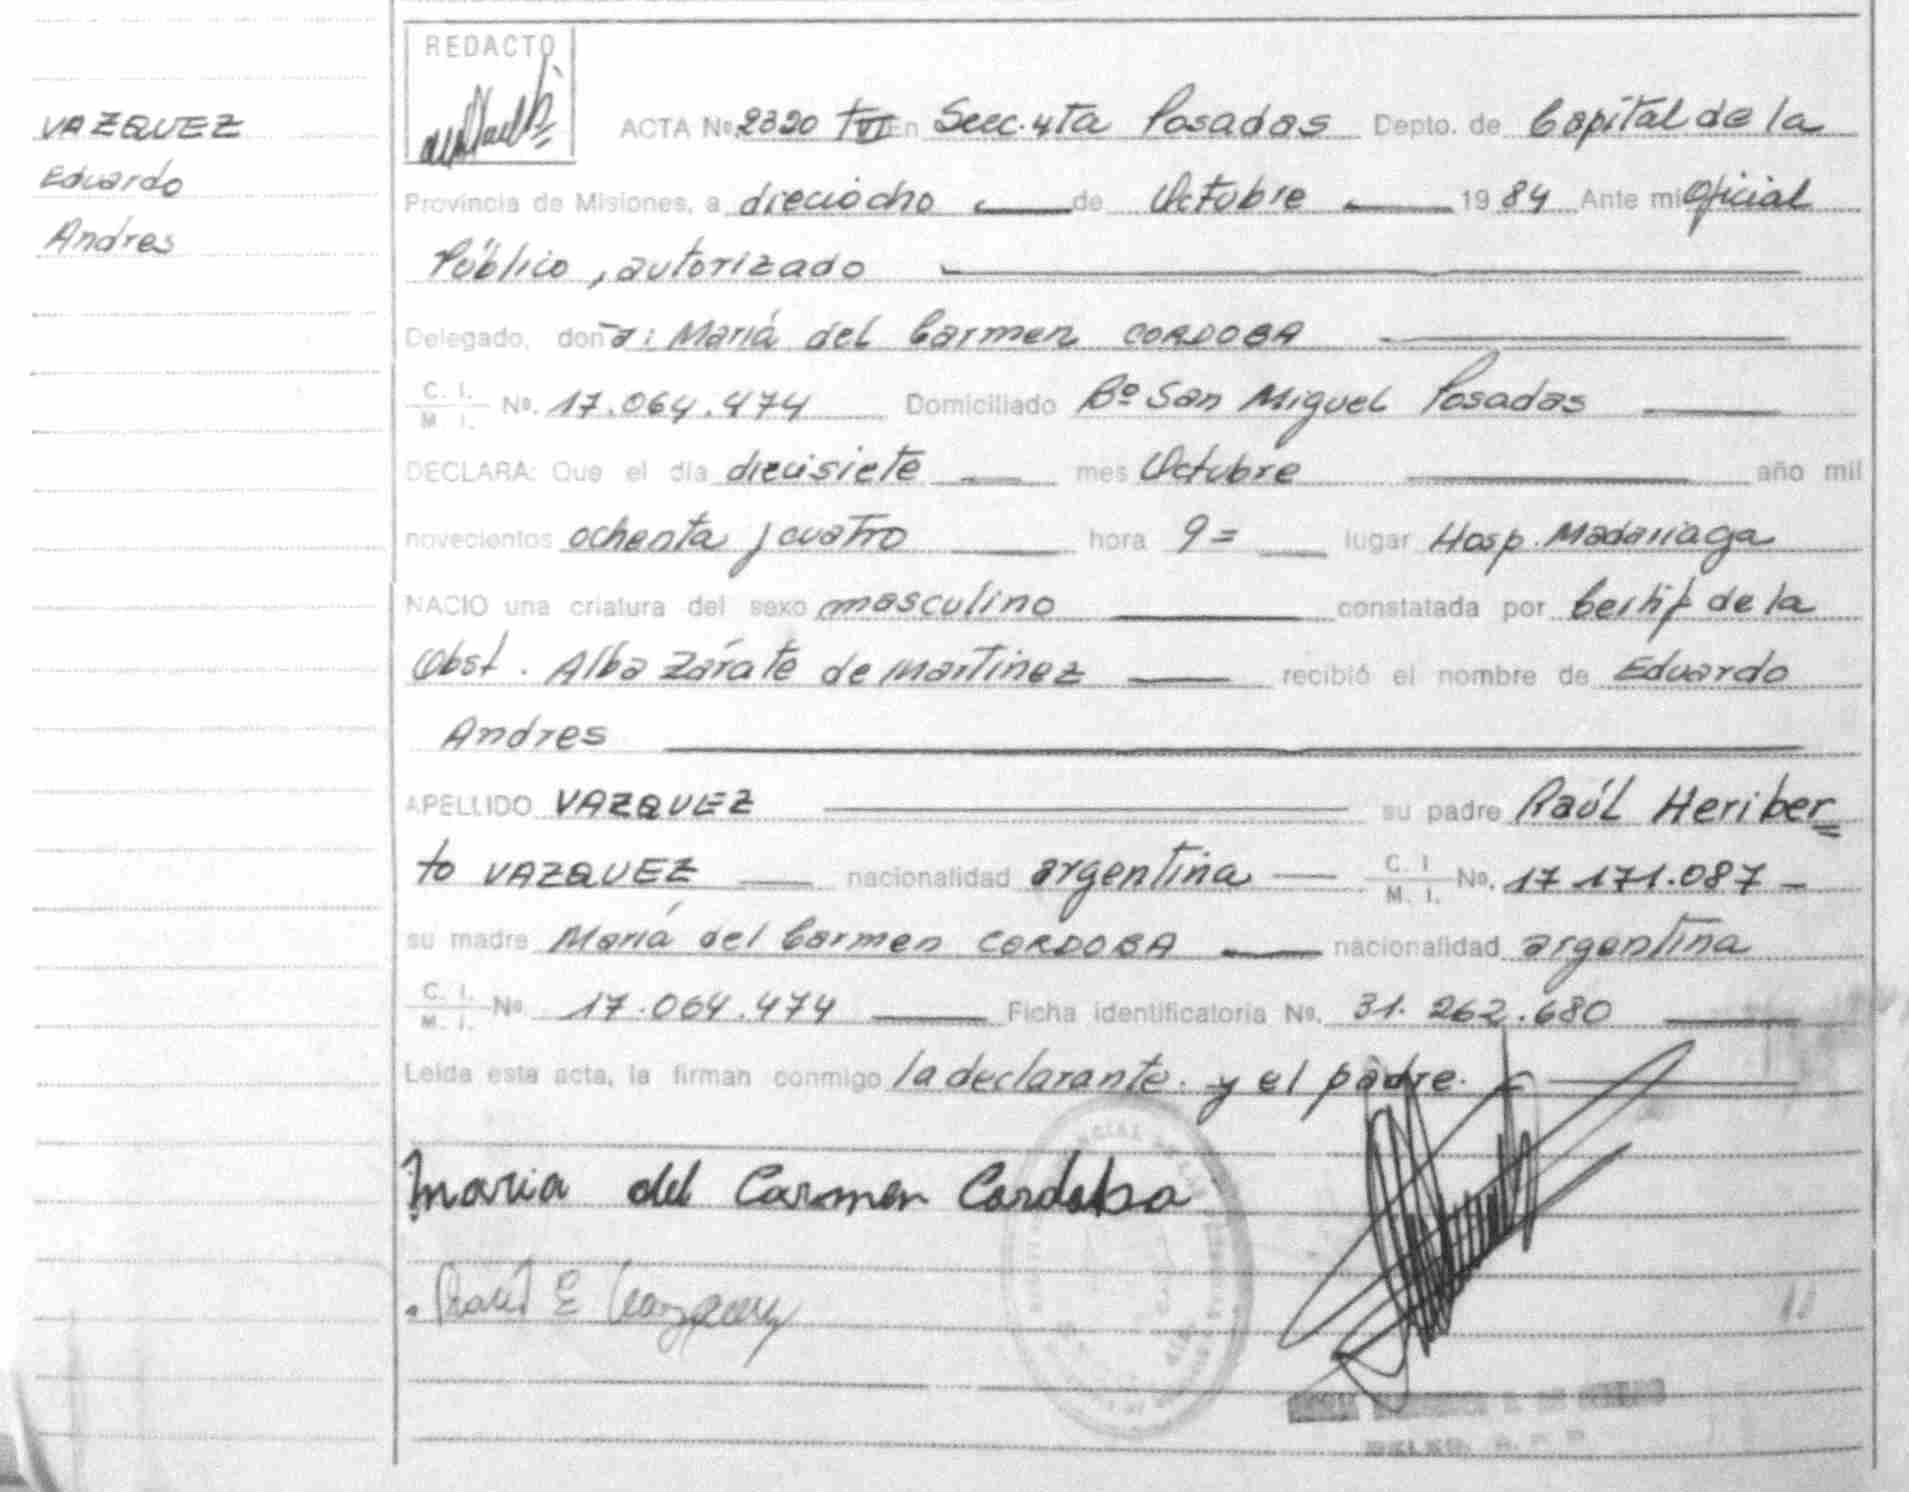 VAZQUEZ
Eduardo
Andres
REDACTO
ACTA Nº 2320 T VI En Secc. 4ta Posadas Depto. de Capital de la
Provincia de Misiones, a dieciocho de Octubre 1984 Ante mi Oficial
Público, autorizado
Delegado, don a: Mariá del Carmen CORDOBA
C. I. M. I. Nº. 17.064.474 Domiciliado Bº San Miguel Posadas
DECLARA: Que el día diecisiete mes Octubre año mil
novecientos ochenta y cuatro hora 9= lugar Hosp. Madariaga
NACIO una criatura del sexo masculino constatada por Certif de la
Obst. Alba Zárate de Martinez recibió el nombre de Eduardo
Andres
APELLIDO VAZQUEZ su padre Raúl Heriber
to VAZQUEZ nacionalidad argentina C. I. M. I. Nº. 17 171.087
su madre Mariá del Carmen CORDOBA nacionalidad argentina
C. I. M. I. Nº 17.064.474 Ficha identificatoria Nº. 31.262.680
Leída esta acta, la firman conmigo la declarante. y el padre.
Maria del Carmen Cordoba